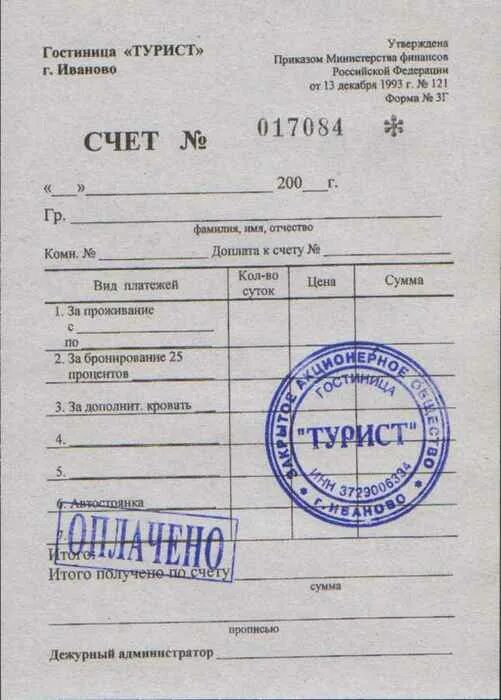 Гостиница «ТУРИСТ»
г. Иваново
Утверждена
Приказом Министерства финансов
Российской Федерации
от 13 декабря 1993 г. № 121
Форма № 3Г
СЧЕТ № 017084 *
«___»_______________ 200___г.
Гр.
фамилия, имя, отчество
Комн. № ____________ Доплата к счету № ____________
Вид платежей
Кол-во
суток
Цена
Сумма
1. За проживание
с
по
2. За бронирование 25
процентов
3. За дополнит. кровать
4.
5.
6. Автостоянка
7.
Итого:
Итого получено по счету
сумма
прописью
Дежурный администратор
ОПЛАЧЕНО
ЗАКРЫТОЕ АКЦИОНЕРНОЕ ОБЩЕСТВО
ГОСТИНИЦА
"ТУРИСТ"
ИНН 3729006334
* г. ИВАНОВО *